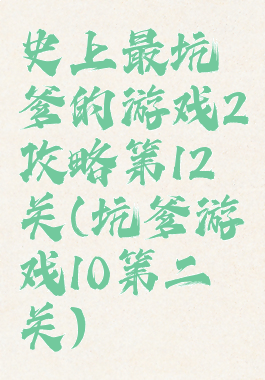 史上最坑
爹的游戏2
攻略第12
关(坑爹游
戏10第二
关)